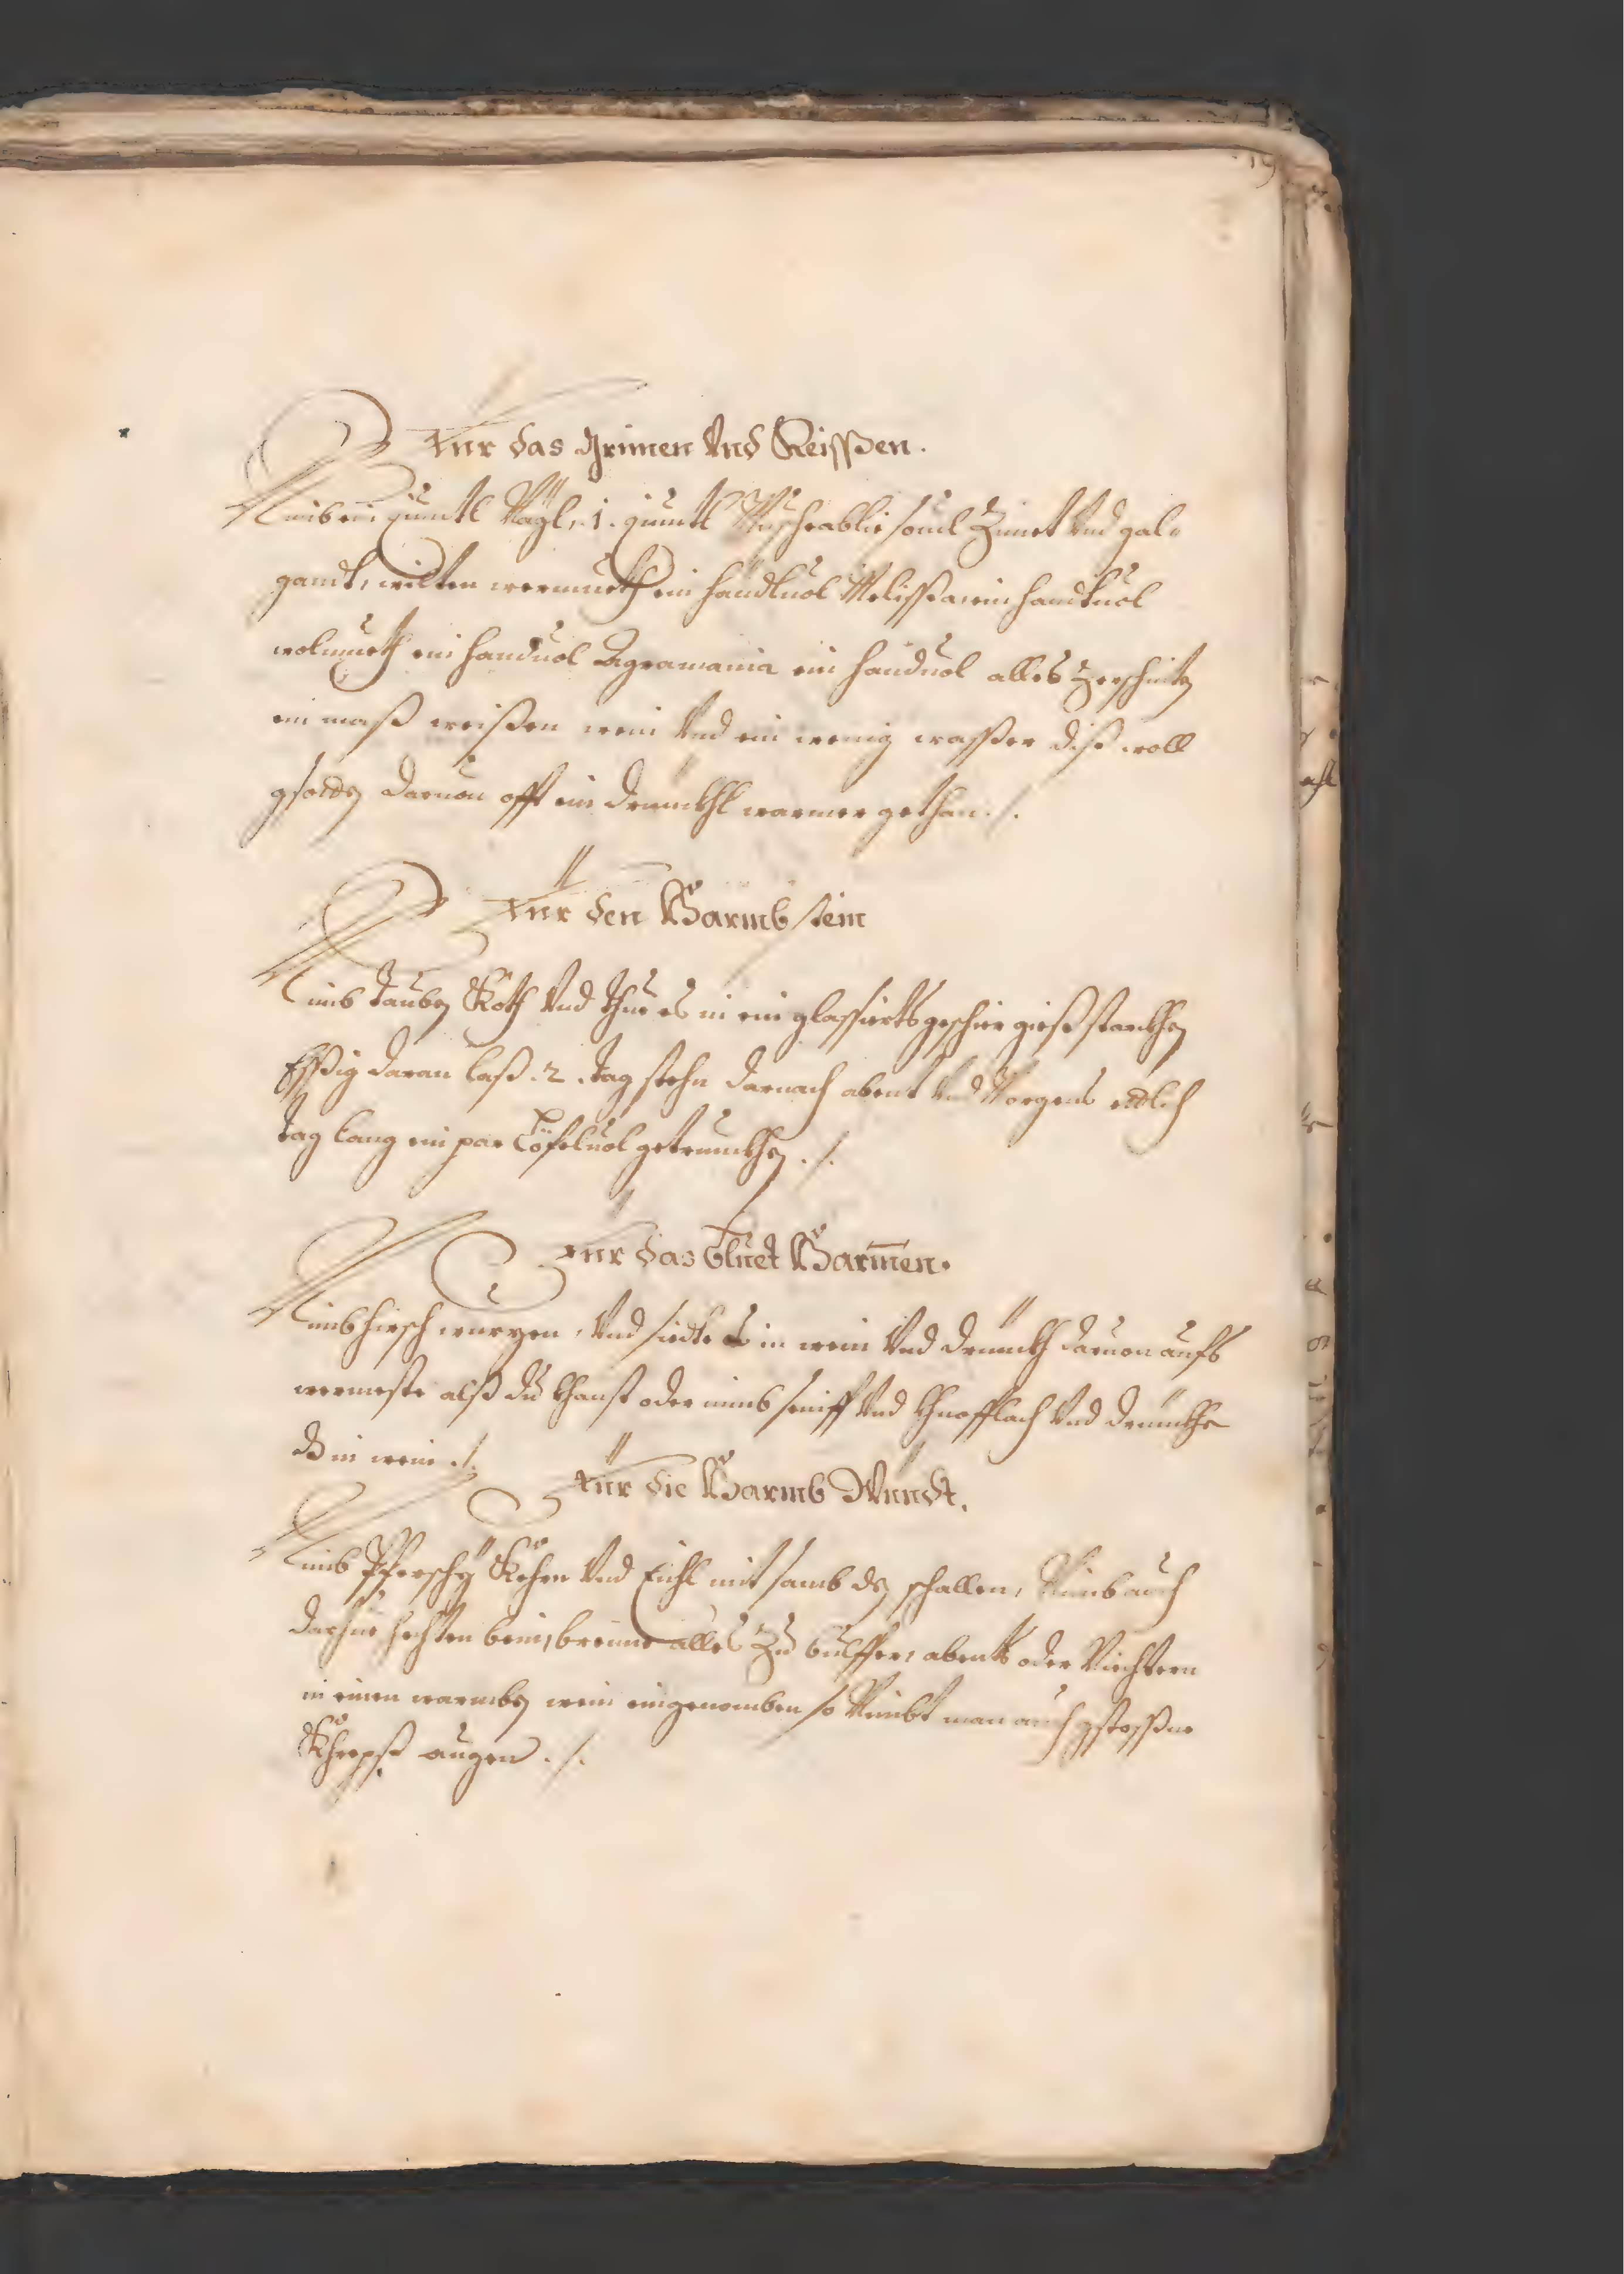 19
Für das Grimen Vnd Reissßen.
Nimb ein quintl Nägl, .1. quintl Muschcablie souil Zimet Vnd gal=
gandt, wilten wermueth ein handtuol Melißa, ein handtuol
wolmueth ein handuol Agramania ein handuol alles Zerschniten
ein maß weißen wein Vnd ein wenig waßer diß woll
gsotten daruon offt ein drunckhl warmer gethan ./.
Für den Harmb stein
Nimb tauben Koth Vnd thue es in ein glassierts geschir gieß starckhen
Eßßig daran laß .2. tag stehn darnach abent Vnd Morgens etlich
tag lang ein par Löfeluol getrunckhen ./.
Für das bluet Harmen.
Nimb hirsch wurzen, Vnd siedte es in wein Vnd drinckh daruon aufs
wermeste alß du khanst oder nimb senff Vnd Khnofflach Vnd drinckhe
es in wein ./.
Für die Harmb Windt.
Nimb Pferschy Kehrn Vnd Eichl mit samb den schallen, Nimb auch
darzue hechten bein, brenne alles Zu bulffer, abents oder Niechtern
in einen warmben wein eingenomben so Nimbt man auch gstossßne
Khrepß augen ./.